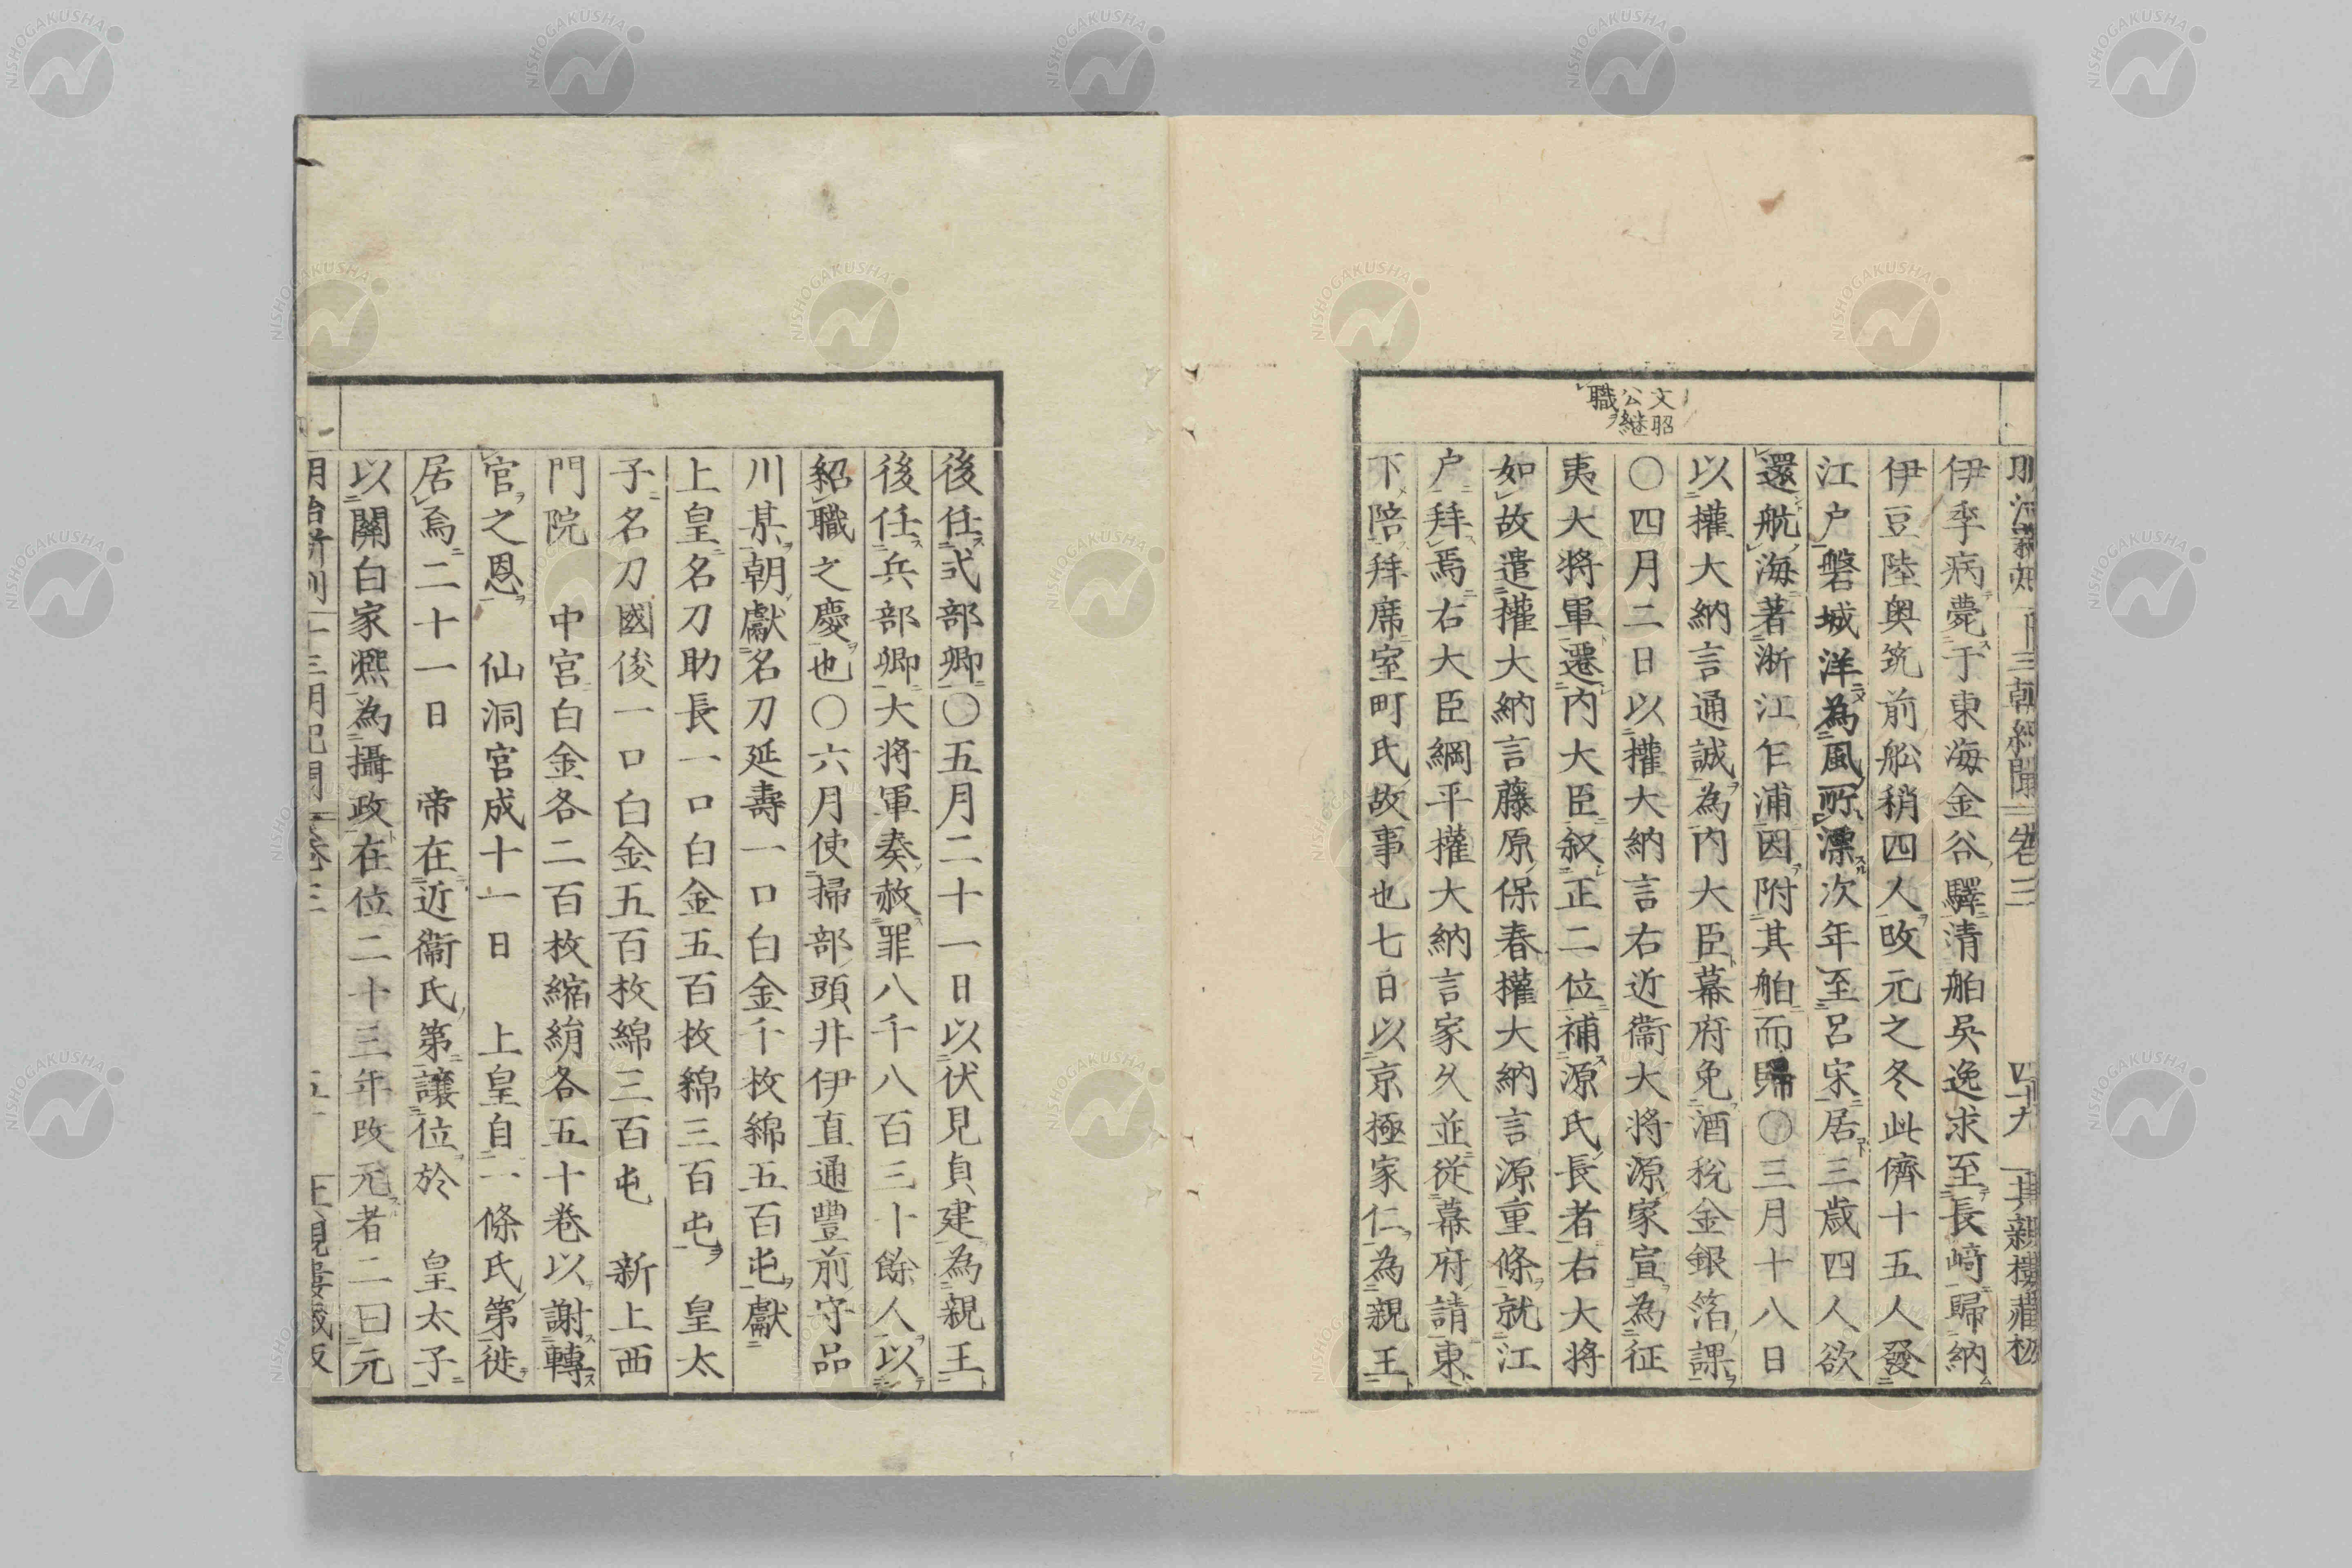 文昭
公継
職
伊季病薨于東海金谷驛清舶吳逸求至長﨑歸納
伊豆陸奥筑前舩稍四人攺元之冬此儕十五人發
江户磐城洋為風所漂次年至呂宋居三歳四人欲
還航海著浙江乍浦因附其舶而歸〇三月十八日
以權大納言通誠為內大臣幕府免酒税金銀箔課
〇四月二日以權大納言右近衞大将源家宣為征
夷大将軍遷內大臣叙正二位補源氏長者右大将
如故遣權大納言藤原保春權大納言源重條就江
户拜焉右大臣綱平權大納言家久並從幕府請東
下陪拜席室町氏故事也七日以京極家仁為親王
後任式部卿〇五月二十一日以伏見貞建為親王
後任兵部卿大将軍奏赦罪八千八百三十餘人以
紹職之慶也〇六月使掃部頭井伊直通豐前守品
川某朝獻名刀延壽一口白金千枚綿五百屯獻
上皇名刀助長一口白金五百枚綿三百屯 皇太
子名刀國俊一口白金五百枚綿三百屯 新上西
門院 中宮白金各二百枚縮絹各五十巻以謝轉
官之恩 仙洞宮成十一日 上皇自一條氏第徙
居焉二十一日 帝在近衞氏第讓位於 皇太子
以關白家熈為攝政在位二十三年攺元者二曰元